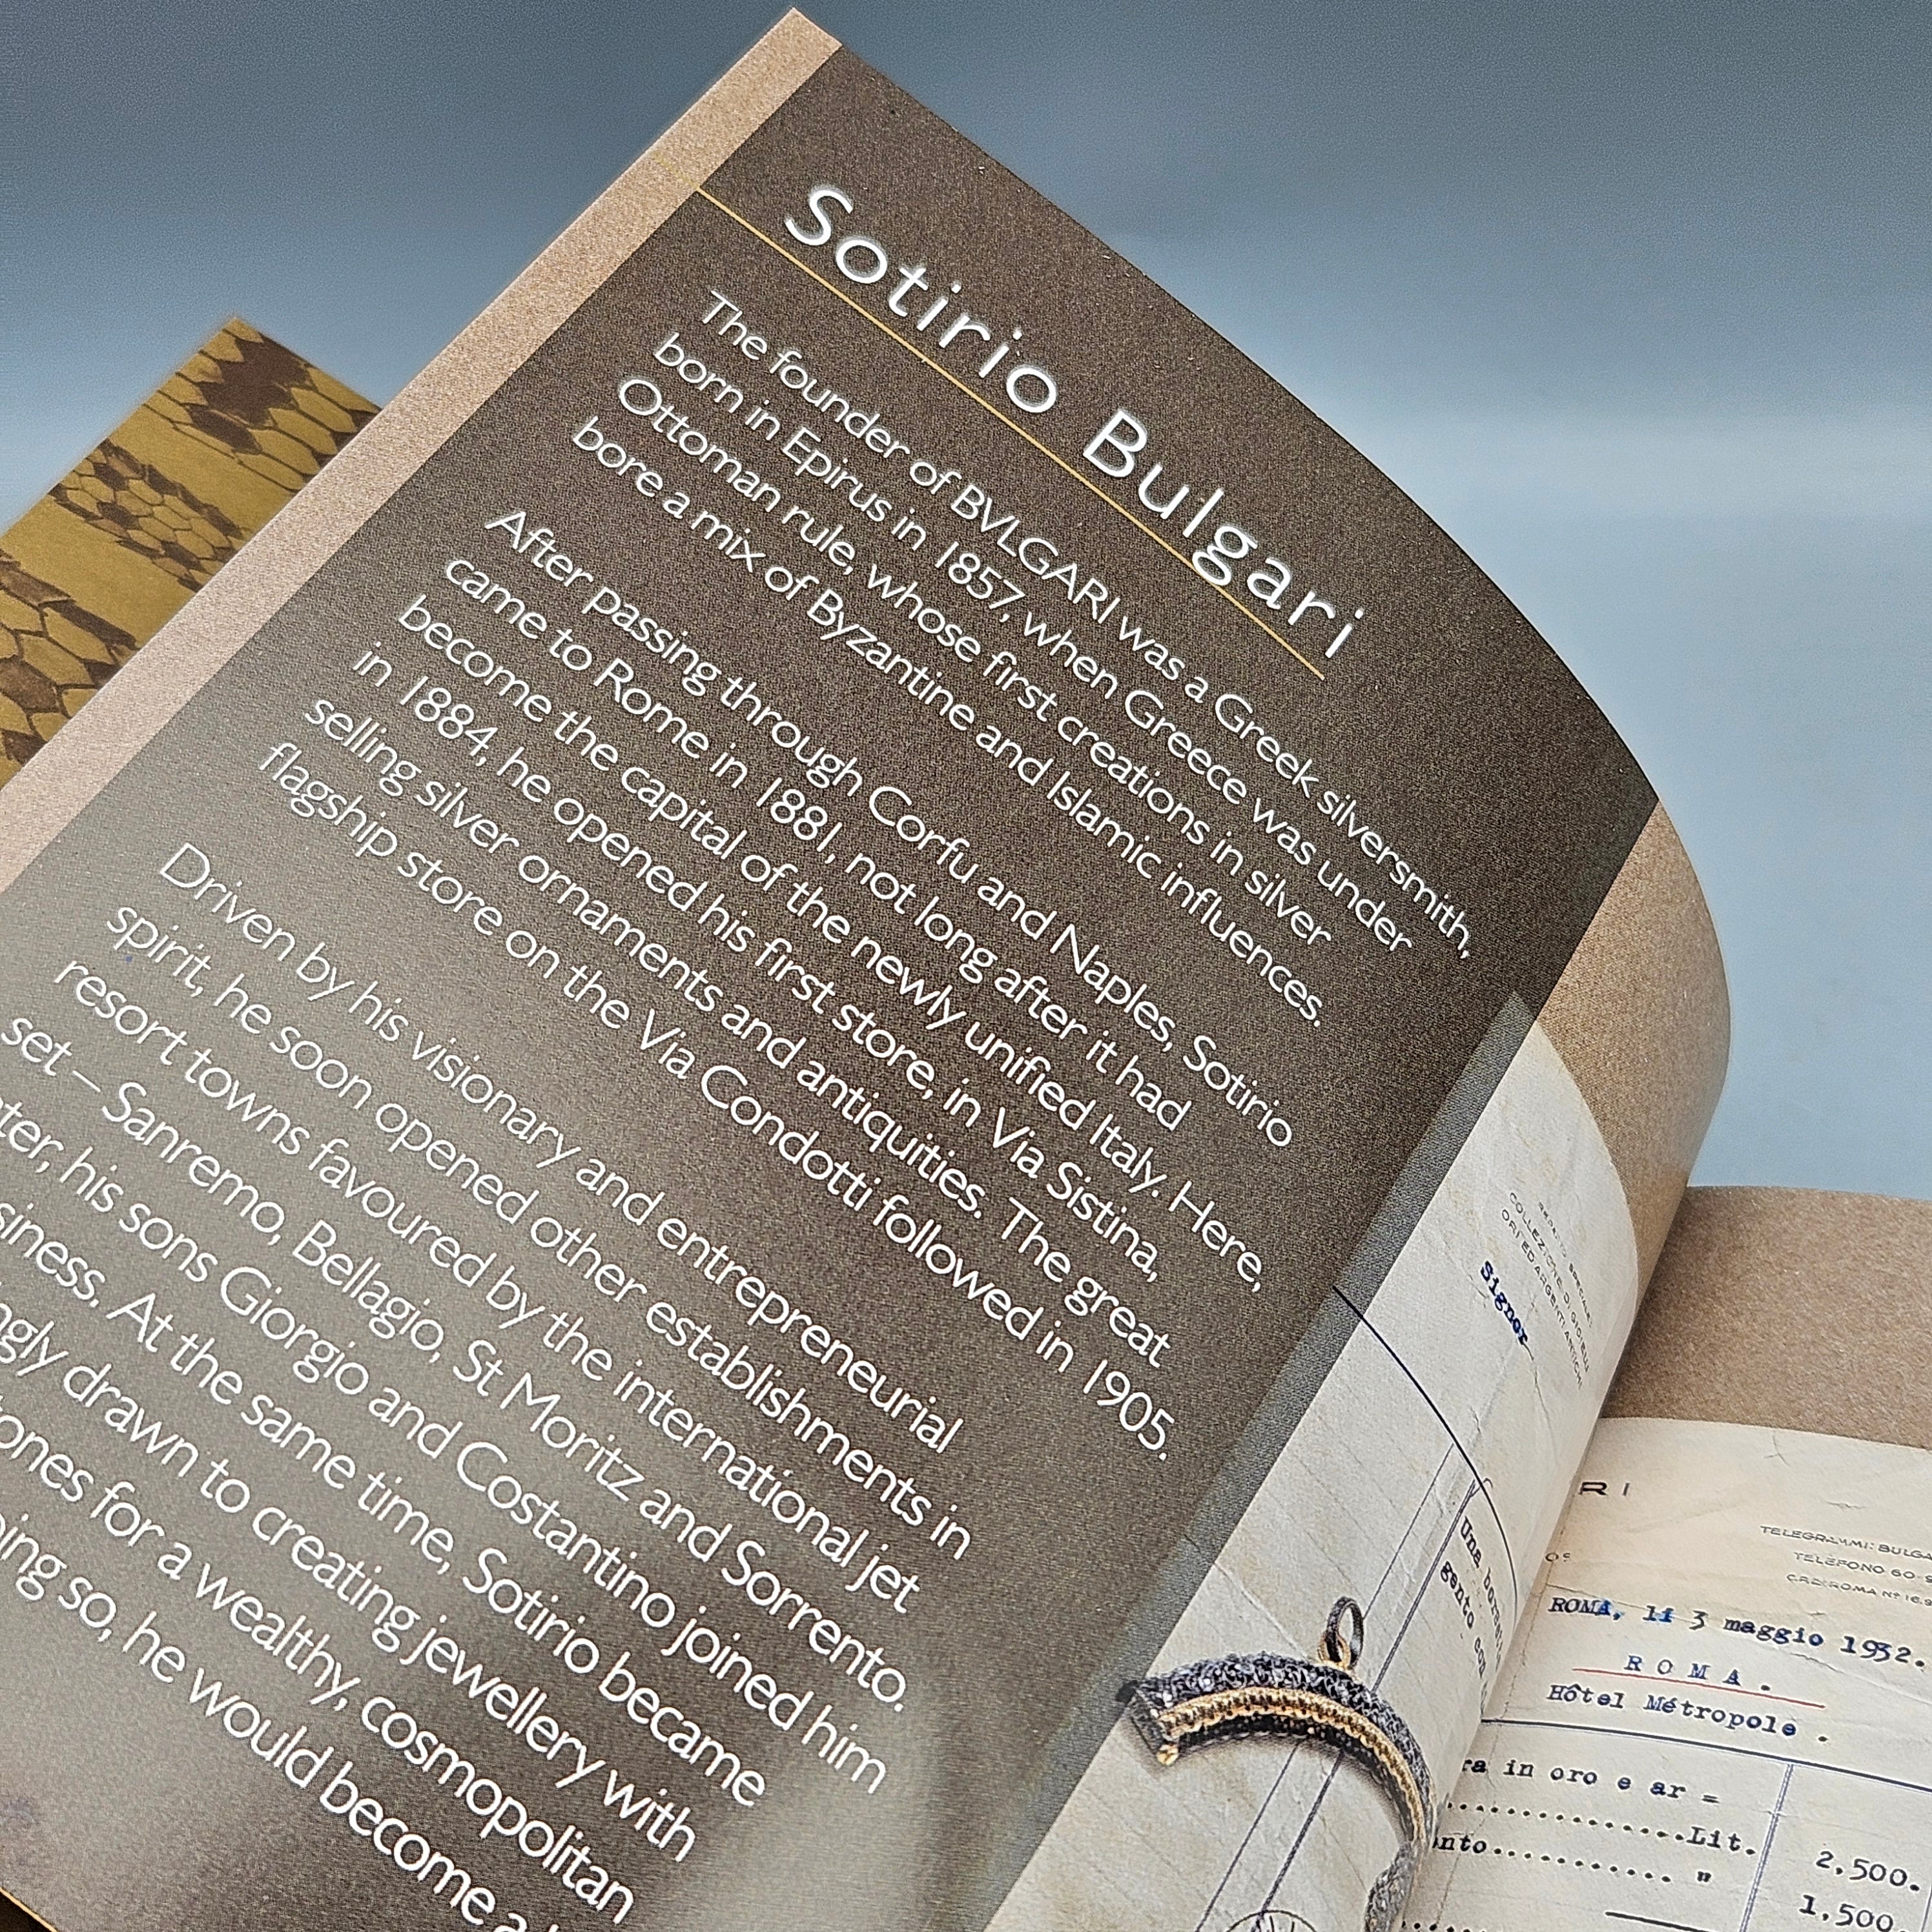 Sotirio Bulgari
The founder of BVLGARI was a Greek silversmith,
born in Epirus in 1857, when Greece was under
Ottoman rule, whose first creations in silver
bore a mix of Byzantine and Islamic influences.
After passing through Corfu and Naples, Sotirio
came to Rome in 1881, not long after it had
become the capital of the newly unified Italy. Here,
in 1884, he opened his first store, in Via Sistina,
selling silver ornaments and antiquities. The great
flagship store on the Via Condotti followed in 1905.
Driven by his visionary and entrepreneurial
spirit, he soon opened other establishments in
resort towns favoured by the international jet
set – Sanremo, Bellagio, St Moritz and Sorrento.
his sons Giorgio and Costantino joined him
At the same time, Sotirio became
drawn to creating jewellery with
for a wealthy, cosmopolitan
so, he would become a
COLLEZIONE DI GIOIELLI
ORI ED ARGENTI ANTICHI
Signor
Una
RI
TELEGRAMMI: BULGA
TELEFONO 60-
ROMA, li 3 maggio 1932.
ROMA.
Hôtel Métropole.
in oro e ar =
Lit. 2,500.
" 1,500.